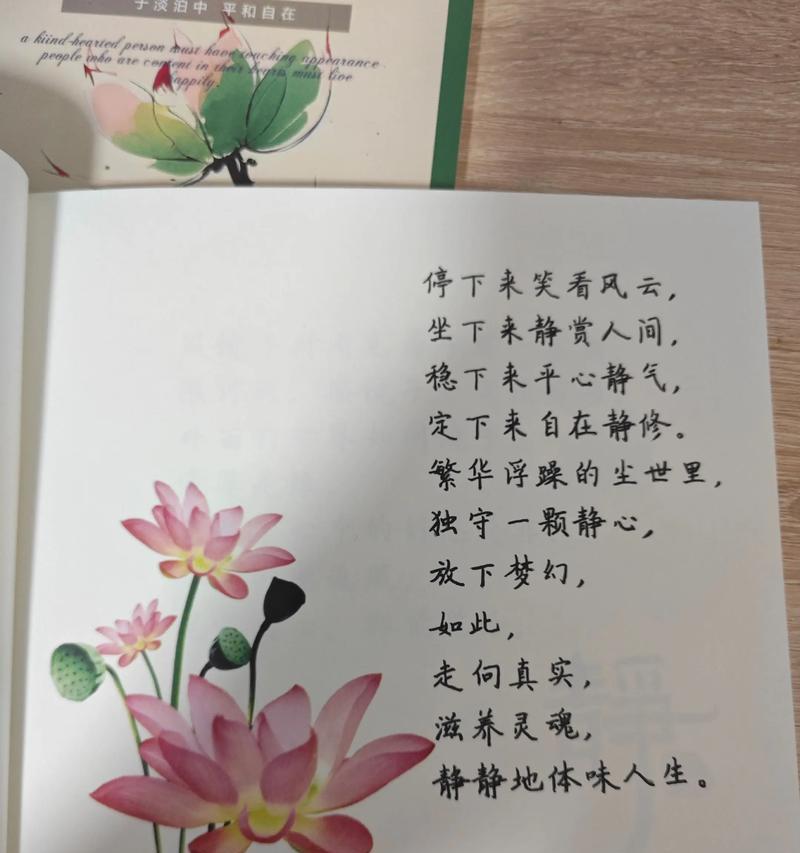 于淡泊中 平和自在
a kiind-hearted person must have touching appearance.
people who are content in their hearts must live
happily.
停下来笑看风云，
坐下来静赏人间，
稳下来平心静气，
定下来自在静修。
繁华浮躁的尘世里，
独守一颗静心，
放下梦幻，
如此，
走向真实，
滋养灵魂，
静静地体味人生。